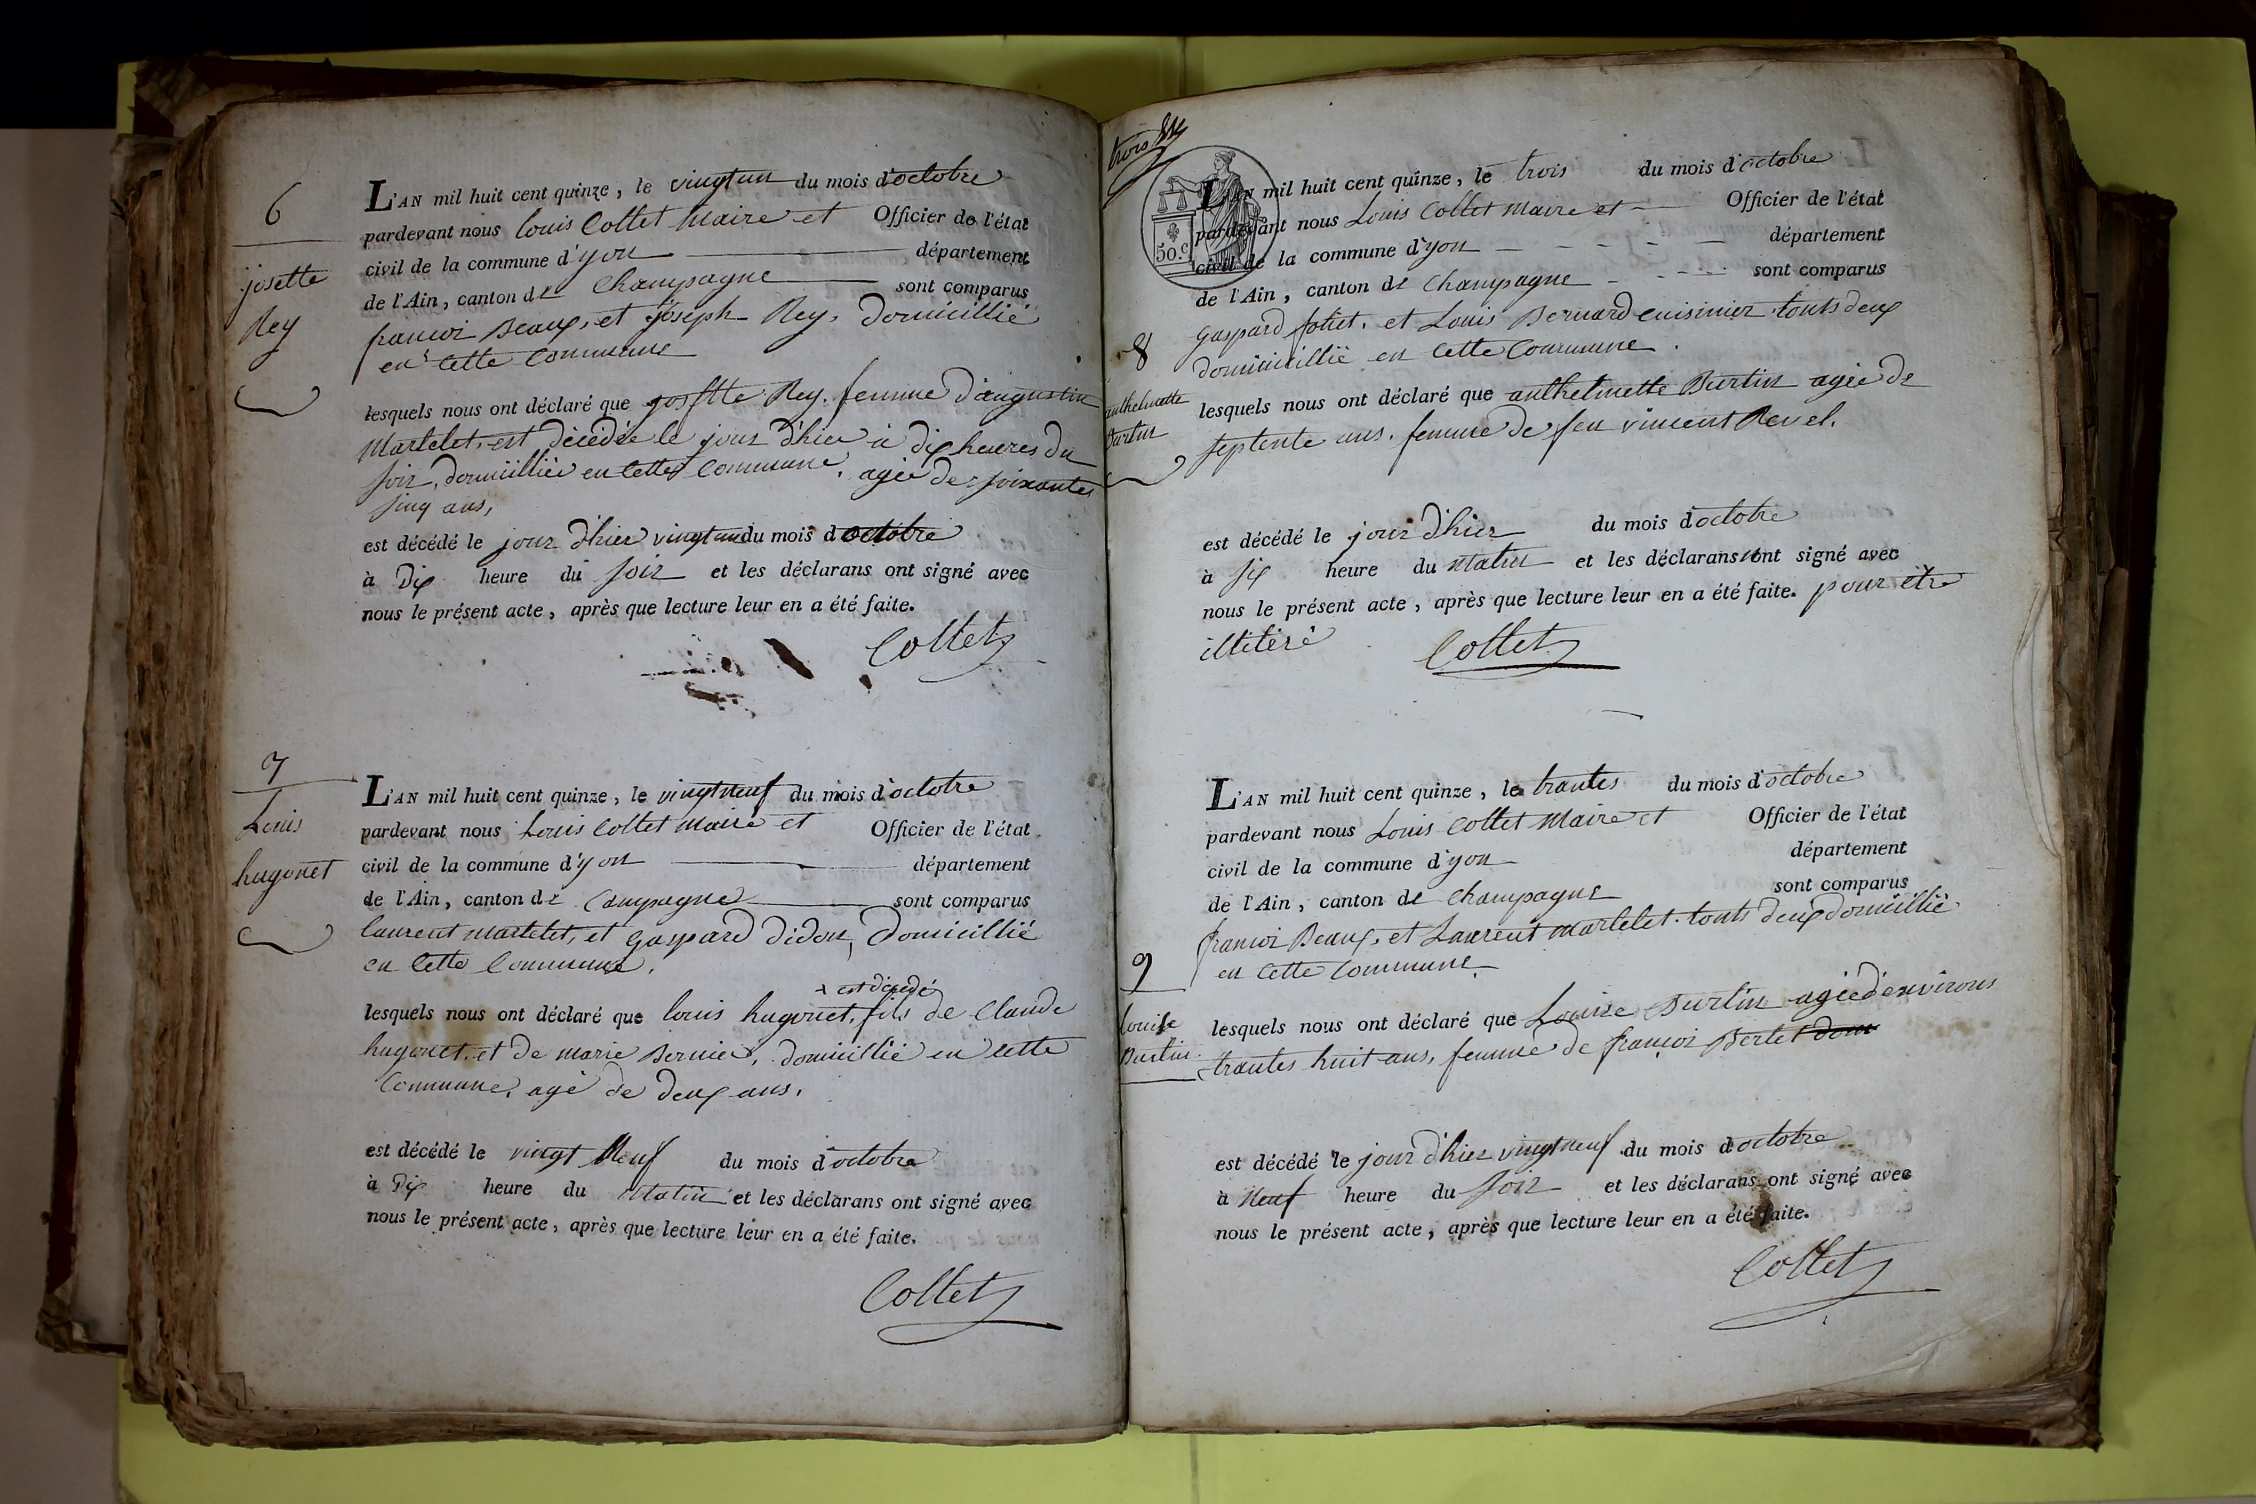 6
josette
Rey
L'AN mil huit cent quinze, le vingtun du mois d'octobre
pardevant nous louis Collet Maire et Officier de l'état
civil de la commune d'yon département
de l'Ain, canton de Champagne sont comparus
francoi Beaux, et joseph Rey, domicillié
en cette Commune
lesquels nous ont déclaré que Rey, femme d'augustin
Martelet, est décédée le jour d'hier à dix heures du
soir, domicilliée en cette Commune, agée de soixantes
sinq ans,
est décédé le jour d'hier vingtun du mois d octobre
à Dix heure du soir et les déclarans ont signé avec
nous le présent acte, après que lecture leur en a été faite.
Collet
7
Louis
hugonet
L'AN mil huit cent quinze, le vingtneuf du mois d'octobre
pardevant nous Louis Collet Maire et Officier de l'état
civil de la commune d'yon département
de l'Ain, canton de Campagne sont comparus
laurent martelet, et gaspard didon, domicillié
en cette Commune,
est décédé
lesquels nous ont déclaré que louis hugonet, fils de Claude
hugonet, et de marie Bernier, domicillié en cette
Commune, agé de deux ans,
est décédé le vingt Neuf du mois d'octobre
à Dix heure du Matin et les déclarans ont signé avec
nous le présent acte, après que lecture leur en a été faite.
Collet
trois
50.c
L'AN mil huit cent quinze, le trois du mois d'octobre
pardevant nous Louis Collet Maire et Officier de l'état
civil de la commune d'yon département
de l'Ain, canton de Champagne sont comparus
gaspard et Louis Bernard cuisinier touts deux
domicillié en cette Commune.
8
anthelmette
Burtin
lesquels nous ont déclaré que anthelmette Burtin agée de
septente ans, femme de feu vincent Revel.
est décédé le jour d'hier du mois d'octobre
à six heure du Matin et les déclarans ont signé avec
nous le présent acte, après que lecture leur en a été faite. pour être
illitéré
Collet
L'AN mil huit cent quinze, le trantes du mois d'octobre
pardevant nous Louis Collet Maire et Officier de l'état
civil de la commune d'yon département
de l'Ain, canton de Champagne sont comparus
francoi Beaux, et Laurent martelet. touts deux domicillié
en cette Commune
9
louise
Burtin
lesquels nous ont déclaré que Louise Burtin agée d'environs
trantes huit ans, femme de françoi Bertet dom
est décédé le jour d'hier vingtneuf du mois d octobre
à Neuf heure du soir et les déclarans ont signé avec
nous le présent acte, après que lecture leur en a été faite.
Collet